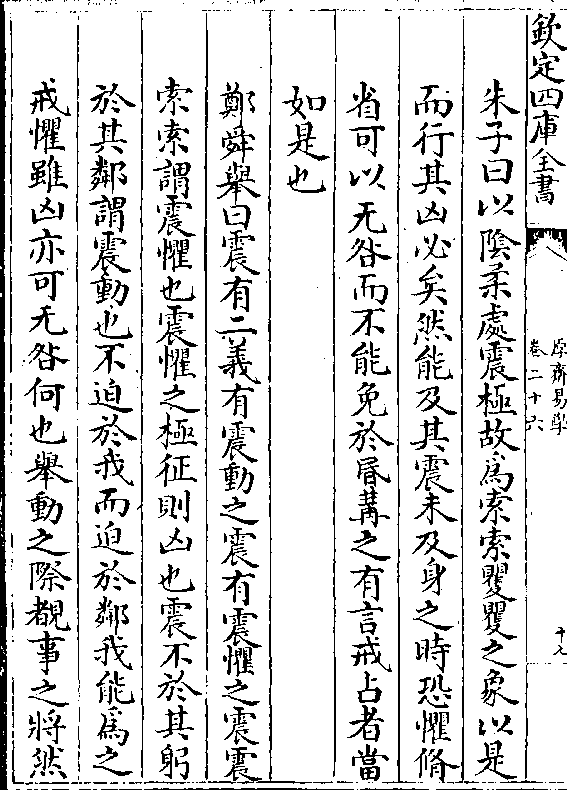 欽定四庫全書
厚齋易學
卷二十六
十九
朱子曰以陰柔處震極故為索索矍矍之象以是
而行其凶必矣然能及其震未及身之時恐懼脩
省可以无咎而不能免於昏媾之有言戒占者當
如是也
鄭舜舉曰震有二義有震動之震有震懼之震震
索索謂震懼也震懼之極征則凶也震不於其躬
於其鄰謂震動也不迫於我而迫於鄰我能為之
戒懼雖凶亦可无咎何也舉動之際覩事之將然